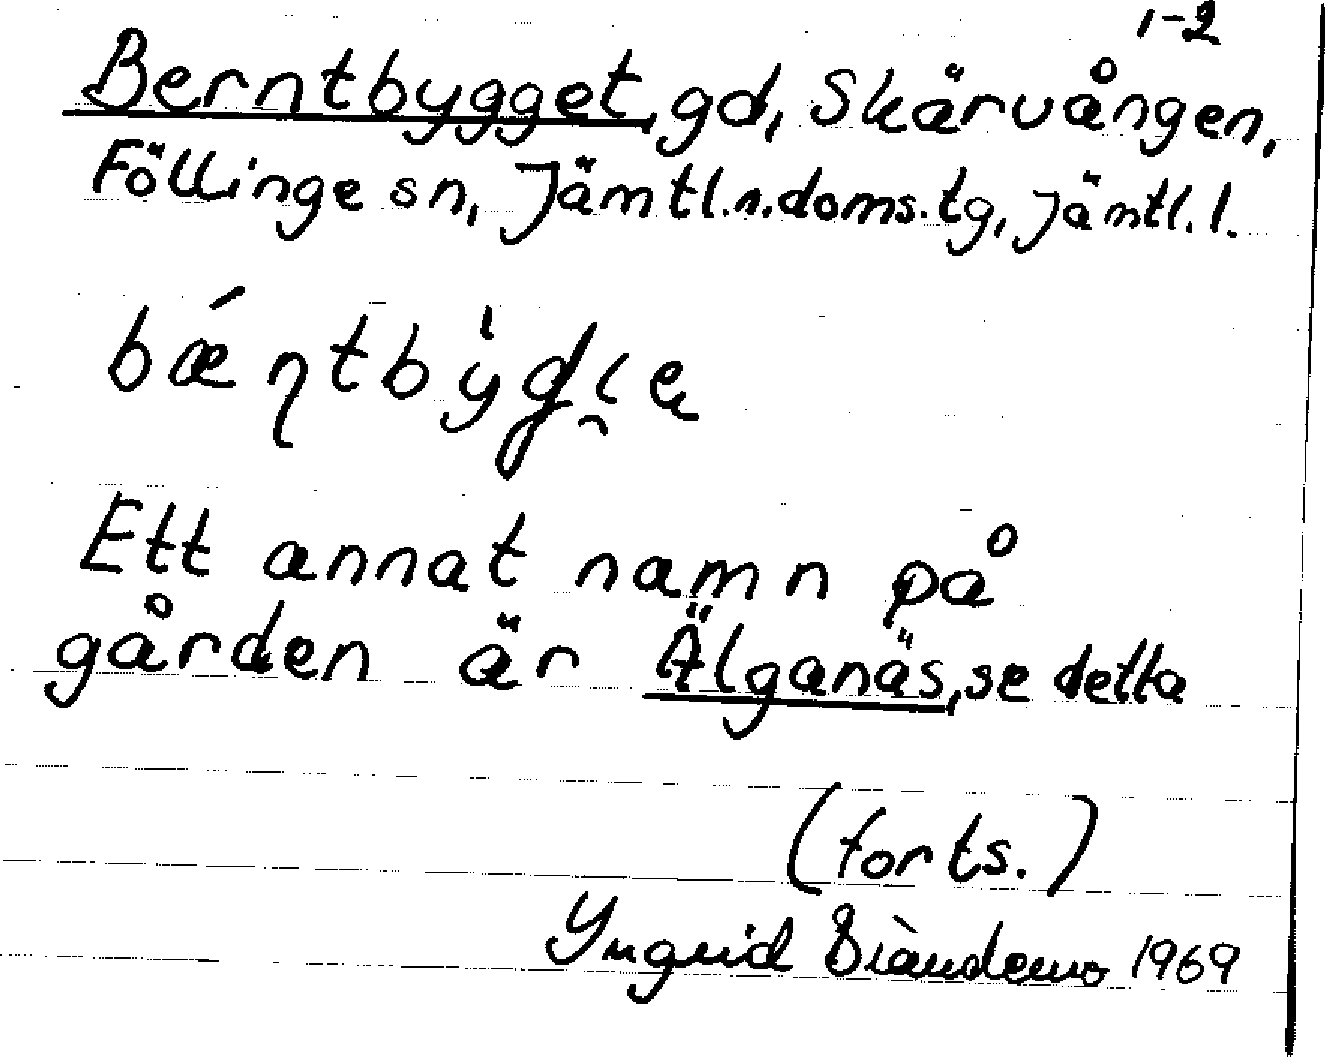 1-2
Berntbygget, gd, Skärvången,
Föllinge sn, Jämtl.n.doms.tg, Jämtl.l.
Ett annat namn på
gården är Älganäs, se detta
(forts.)
Yngvid 1969